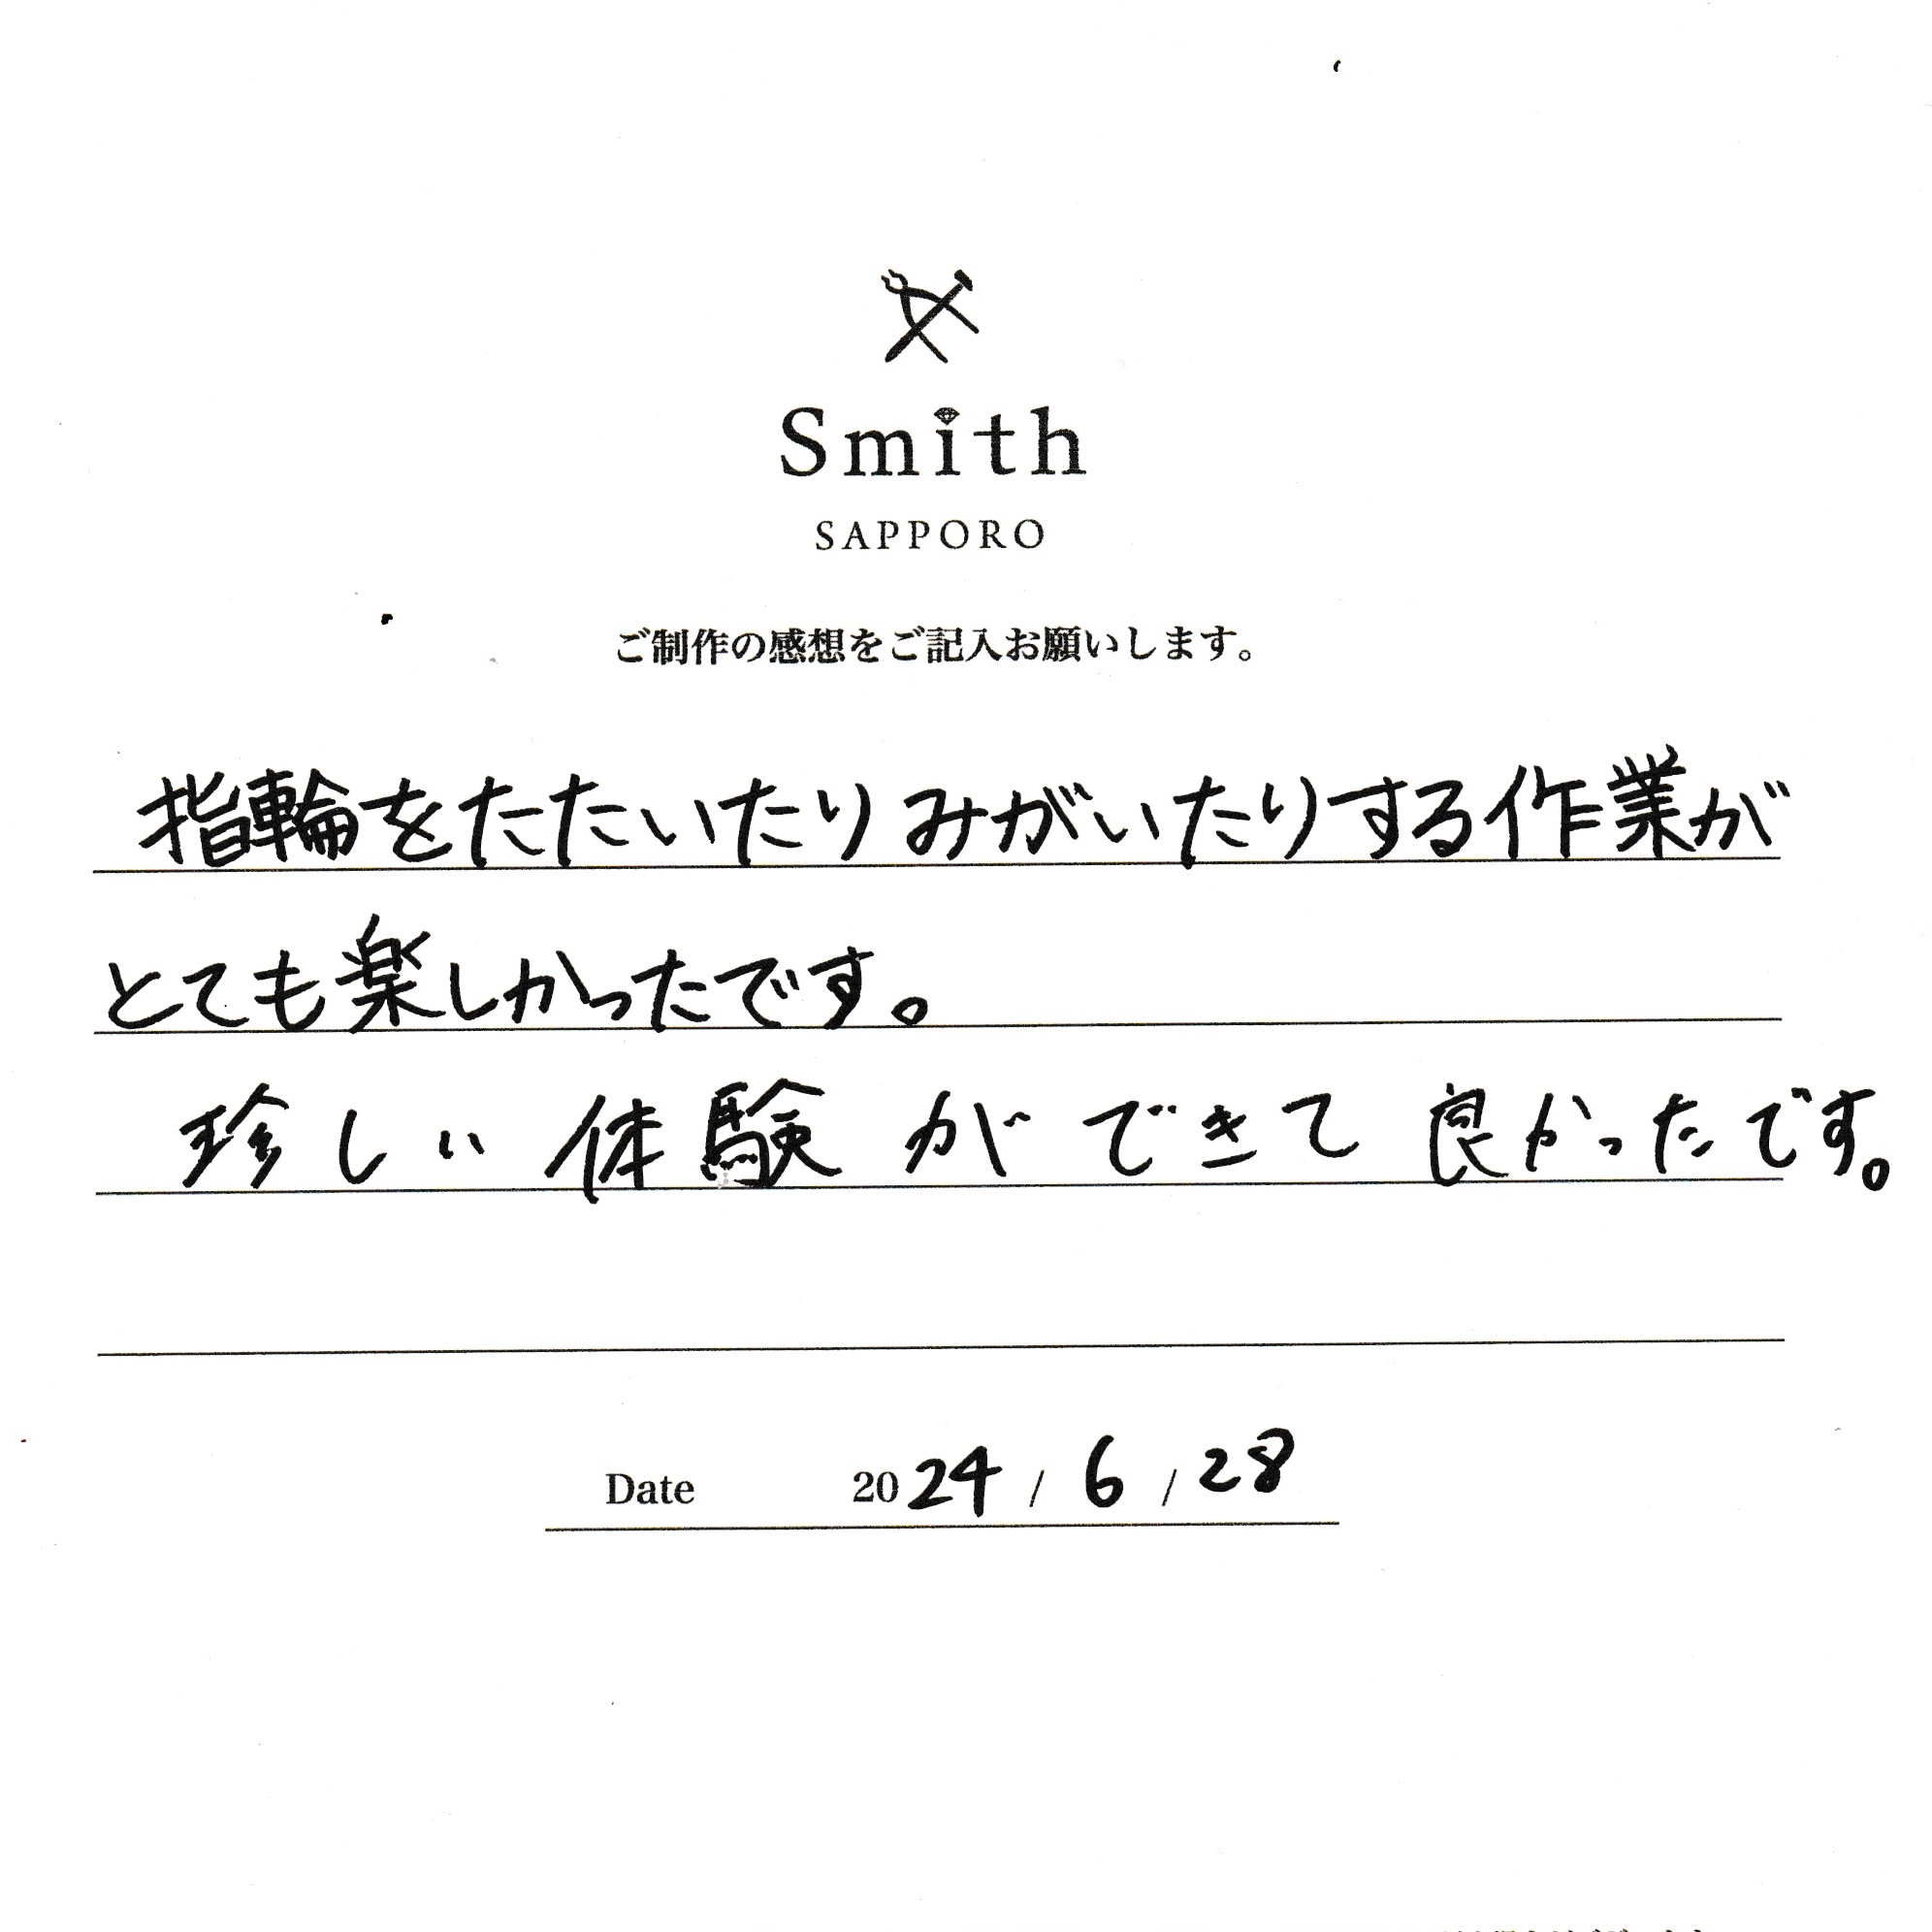 Smith
SAPPORO
ご制作の感想をご記入お願いします。
指輪をたたいたりみがいたりする作業が
とても楽しかったです。
珍しい体験ができて良かったです。
Date 2024 / 6 / 28